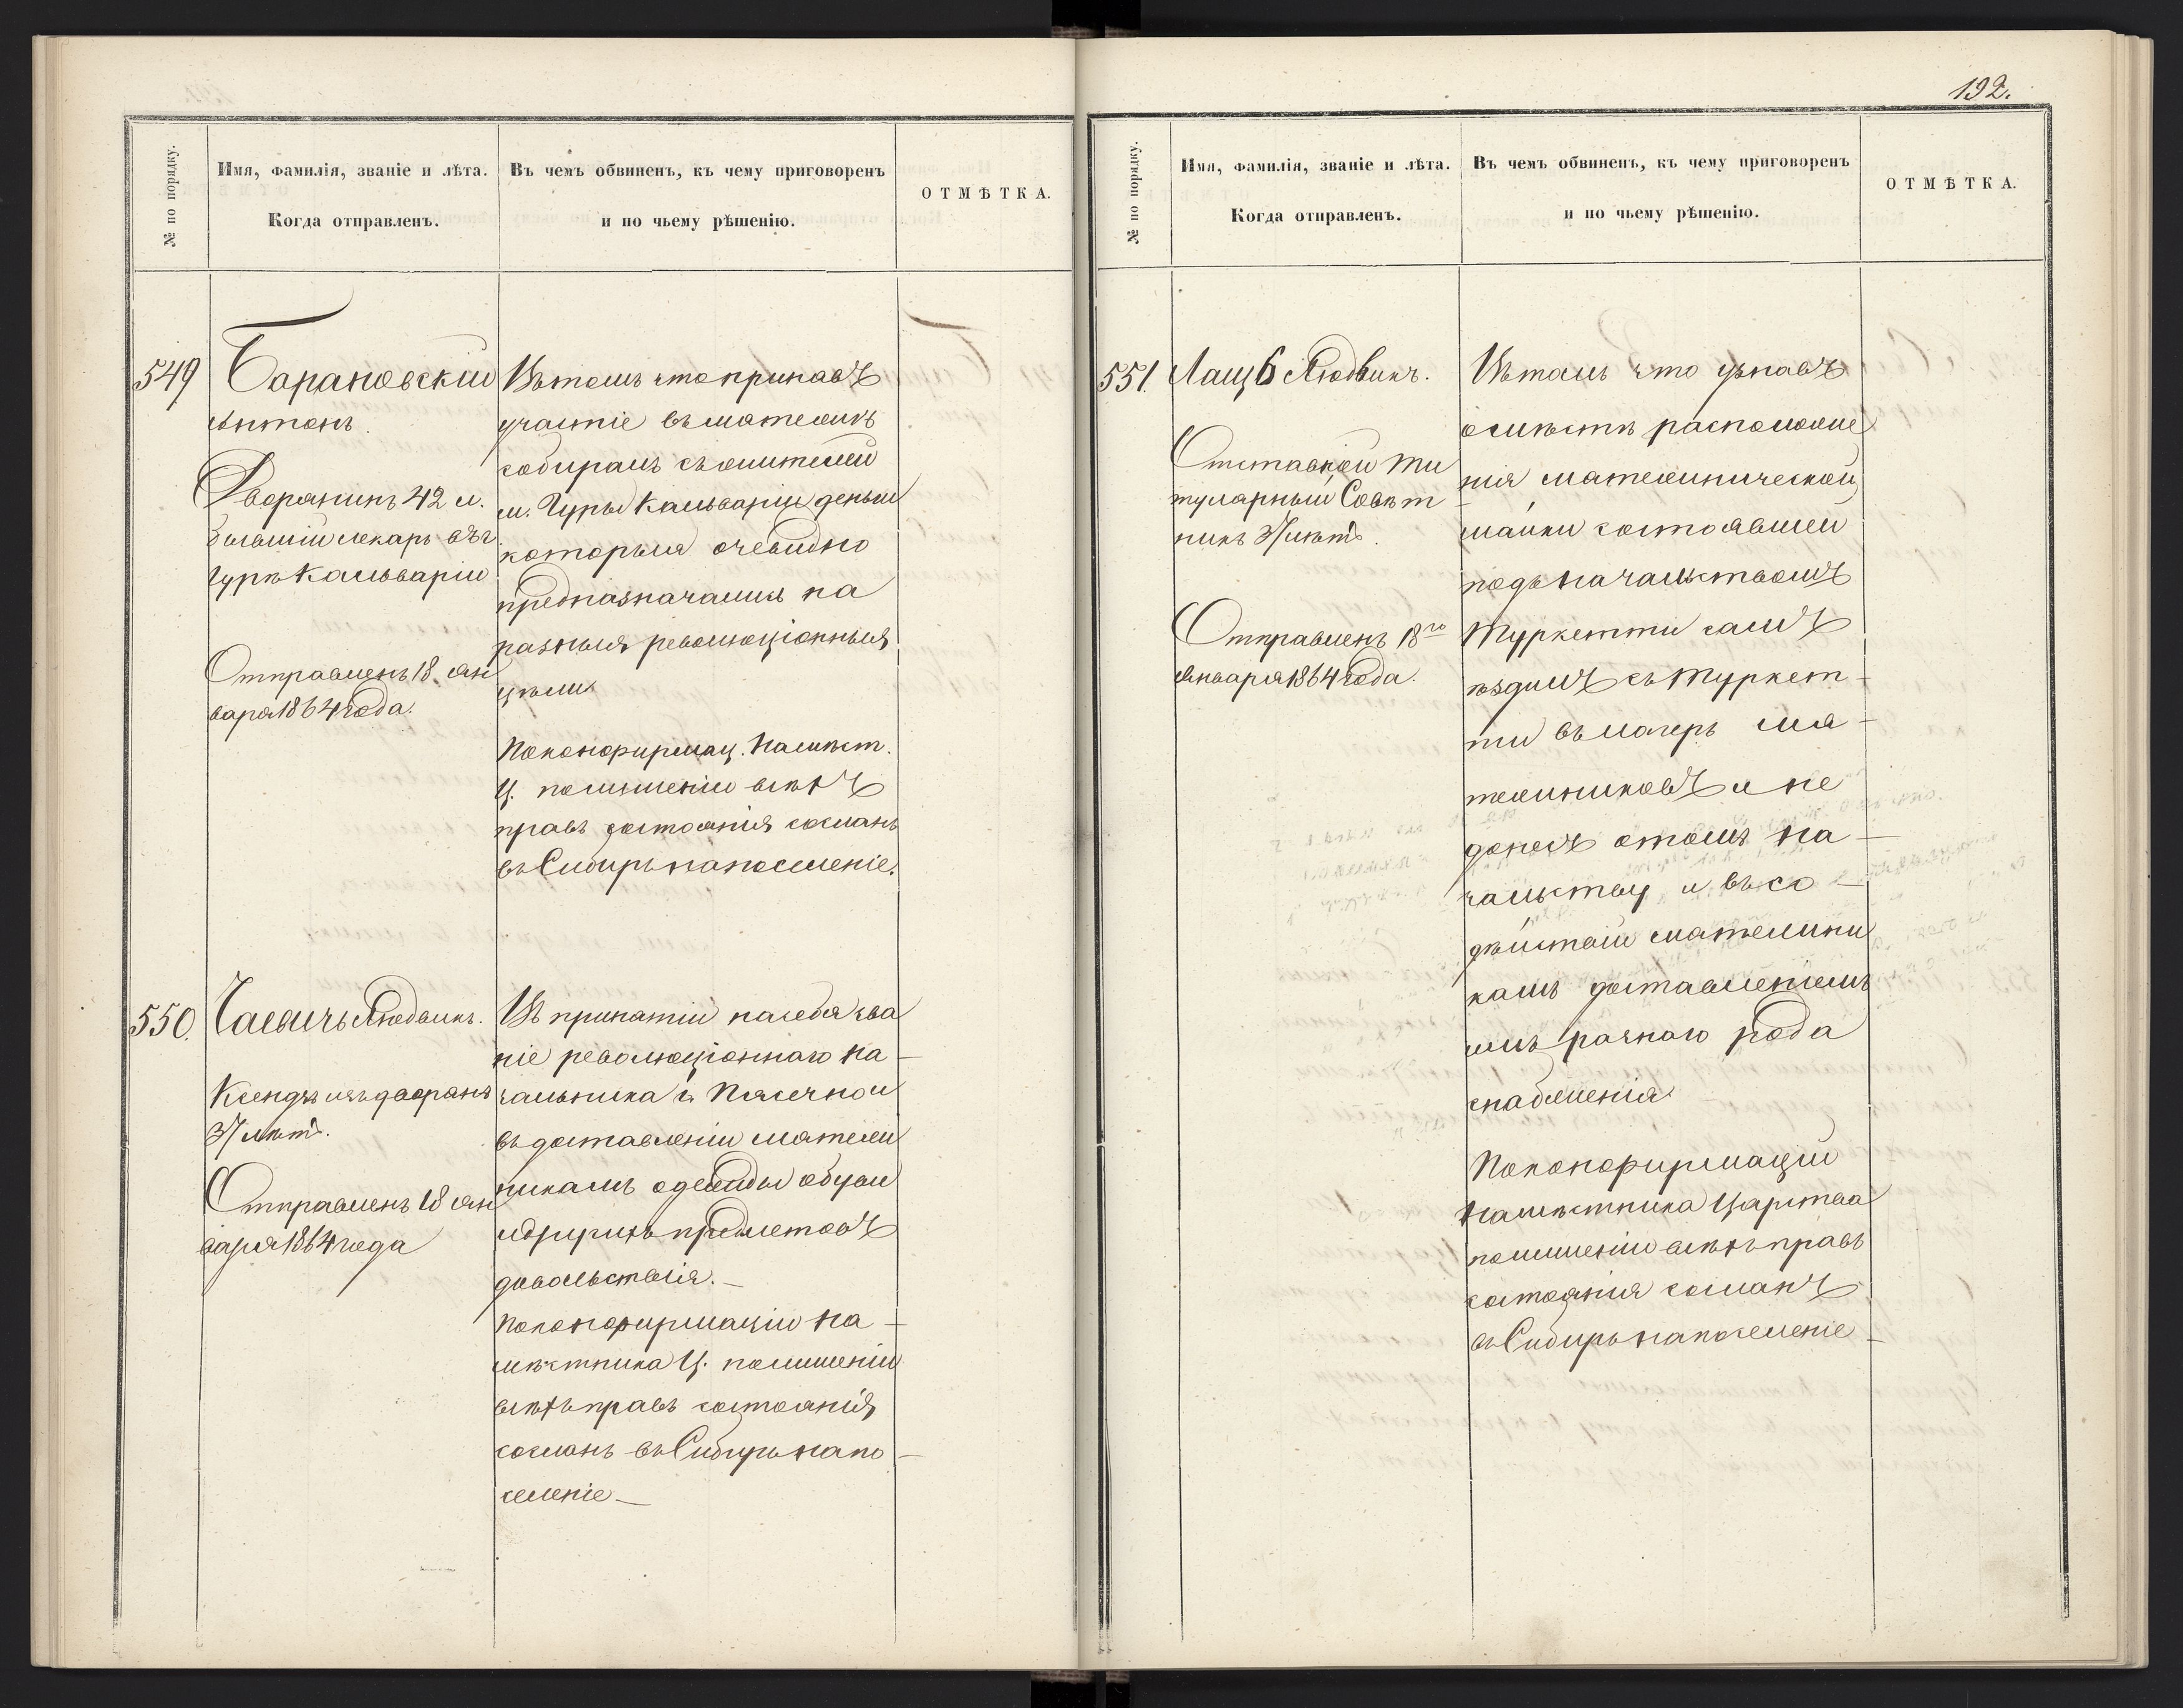 192.
№ по порядку.
Имя, фамилія, званіе и лѣта.
Когда отправленъ.
Въ чемъ обвиненъ, къ чему приговоренъ
и по чьему рѣшенію.
ОТМѢТКА.
549
Барановскій
Антонъ.
Дворянинъ 42 л.
бывшій лекарь въ г.
Гурѣ Кальваріи
Отправленъ 18 Ян
варя 1864 года.
Въ томъ что принявъ
участіе въ мятежѣ
собиралъ съ жителей
м. Гуры Кальваріи деньги
которыя очевидно
предназначались на
разныя революціонныя
цѣли
По конфирмац. Намѣст.
Ц. по лишеніи всѣхъ
правъ состоянія сосланъ
въ Сибирь на поселеніе.
550.
Людвикъ.
Ксендзъ изъ дворянъ
37 лѣтъ.
Отправленъ 18 Ян
варя 1864 года
Въ принятіи на себя зва
ніе революціоннаго на-
чальника г. Пясечной
въ доставленіи мятеж
никамъ одежды обуви
и другихъ предметовъ
довольствія.—
По конфирмаціи На-
мѣстника Ц. по лишеніи
всѣхъ правъ состоянія
сосланъ въ Сибирь на по-
селеніе—
№ по порядку.
Имя, фамилія, званіе и лѣта.
Когда отправленъ.
Въ чемъ обвиненъ, къ чему приговоренъ
и по чьему рѣшенію.
ОТМѢТКА.
551.
Лащъ Людвикъ.
Отставной Ти
тулярный Совѣт
никъ 37 лѣтъ.
Отправленъ 18го
Января 1864 года.
Въ томъ что узнавъ
о мѣстѣ расположе
нія мятежнической
шайки состоявшей
подъ начальствомъ
Туркетти самъ
ѣздилъ съ Туркет-
ти въ лагерь мя-
тежниковъ и не
донесъ о томъ на-
чальству и въ со-
дѣйствіи мятежни
камъ доставленіемъ
имъ разнаго рода
снабженія
По конфирмаціи
Намѣстника Царства
по лишеніи всѣхъ правъ
состоянія сосланъ
въ Сибирь на поселеніе—